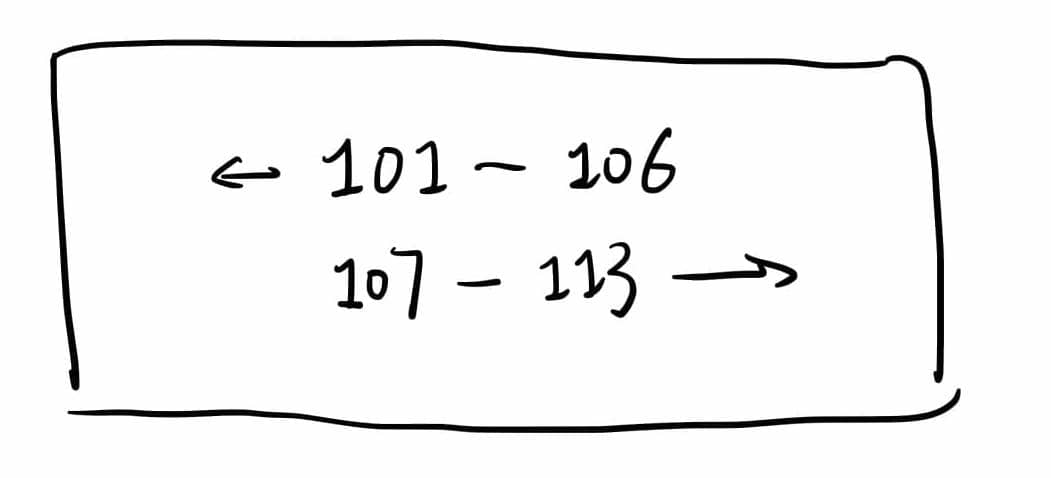 ← 101 - 106
107 - 113 →